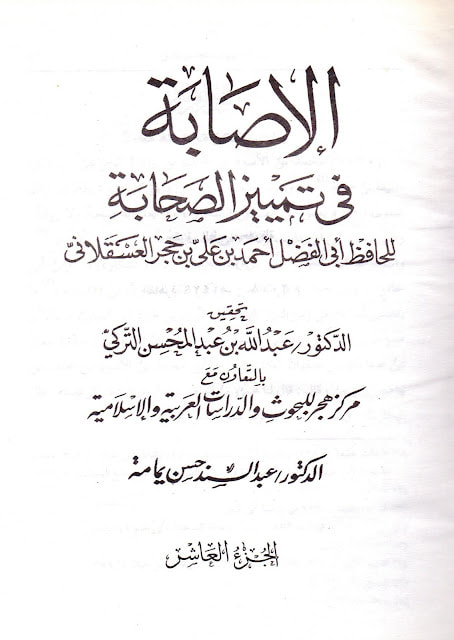 الإصابة
في تمييز الصحابة
للحافظ أبي الفضل أحمد بن علي بن حجر العسقلاني
تحقيق
الدكتور/ عبد الله بن عبد المحسن التركي
بالتعاون مع
مركز هجر للبحوث والدراسات العربية والإسلامية
الدكتور/ عبد السند حسن يمامة
الجزء العاشر